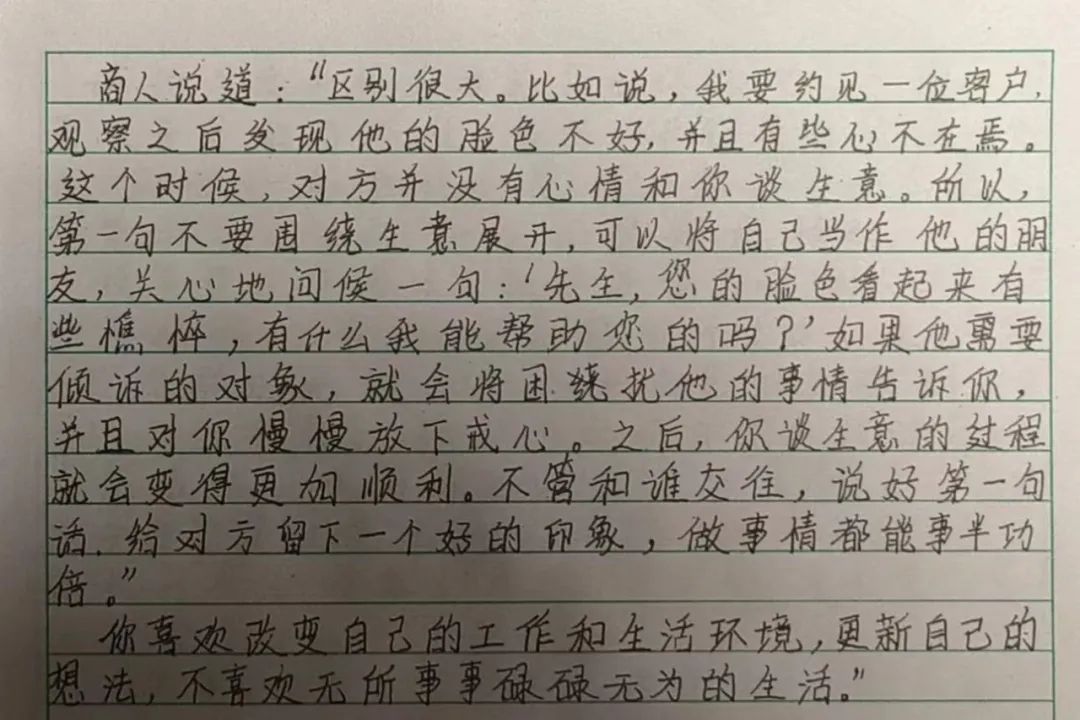 商人说道：“区别很大。比如说，我要约见一位客户，
观察之后发现他的脸色不好，并且有些心不在焉。
这个时候，对方并没有心情和你谈生意。所以，
第一句不要围绕生意展开，可以将自己当作他的朋
友，关心地问候一句：‘先生，您的脸色看起来有
些憔悴，有什么我能帮助您的吗？’如果他需要
倾诉的对象，就会将困绕扰他的事情告诉你，
并且对你慢慢放下戒心。之后，你谈生意的过程
就会变得更加顺利。不管和谁交往，说好第一句
话，给对方留下一个好的印象，做事情都能事半功
倍。”
你喜欢改变自己的工作和生活环境，更新自己的
想法，不喜欢无所事事碌碌无为的生活。”